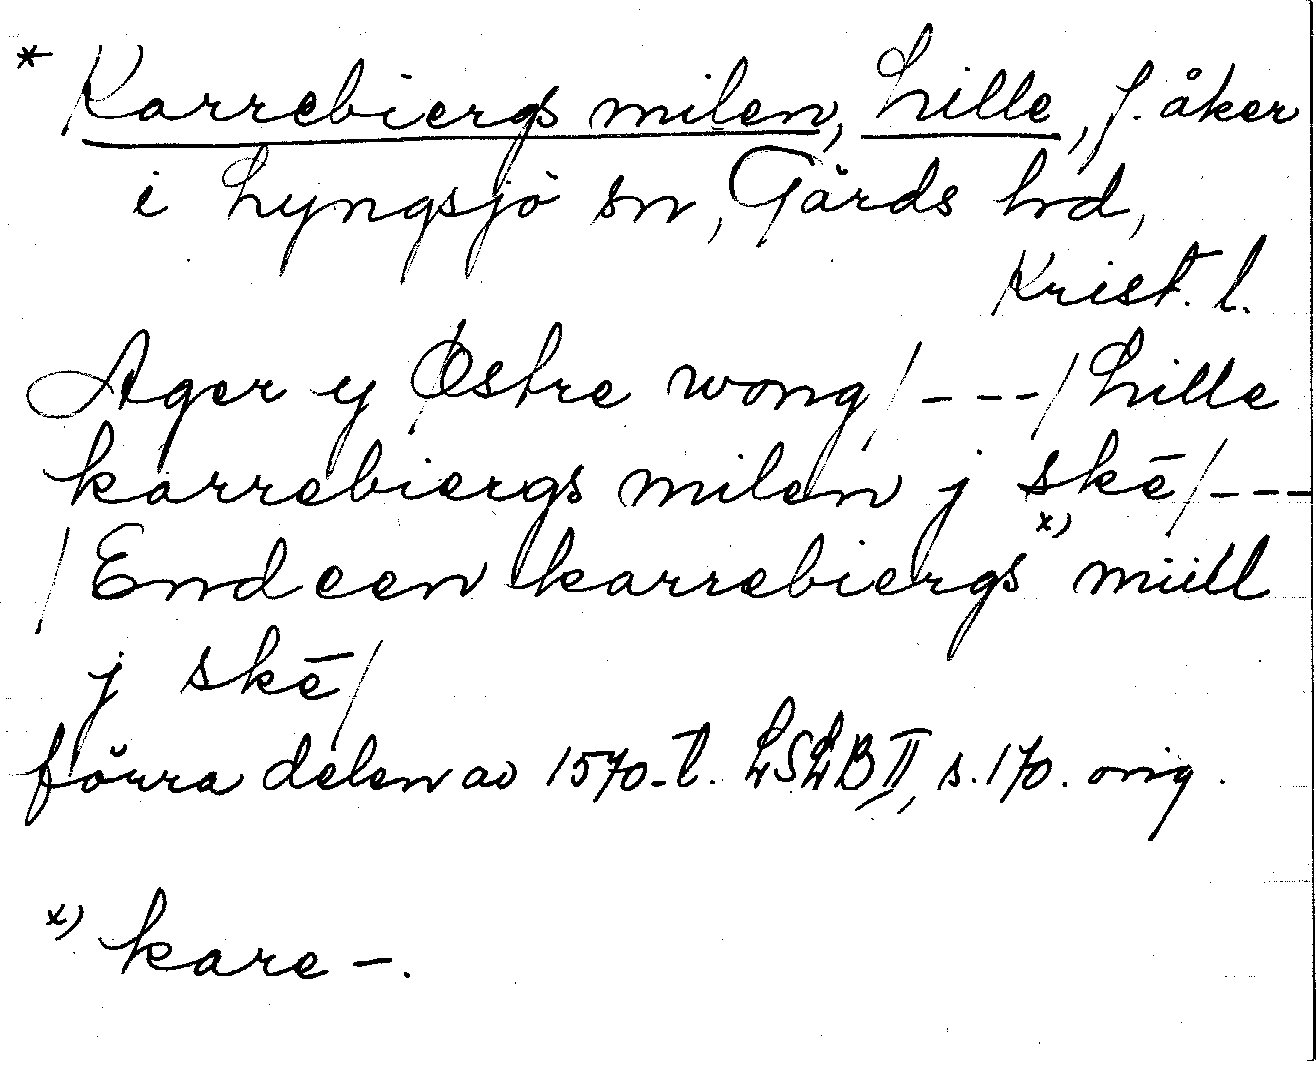 * Karrebiergs milen, Lille, f. åker
i Lyngsjö sn, Gärds hd,
Krist. l.
Ager y Østre wong /---/ Lille
karrebiergs milen j skē /---
/ End een karrebiergs x) miill
j skē /
förra delen av 1570-t. LSLB II, s. 170. orig.
x) kare -.